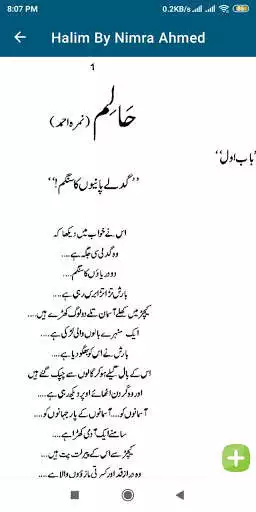 8:07 PM
0.2KB/s
Halim By Nimra Ahmed
1
حَالِم (نمرہ احمد)
’’باب اول‘‘
’’گدلے پانیوں کا سنگم!‘‘
اس نے خواب میں دیکھا کہ
وہ گدلی سی جگہ ہے....
دو دریاؤں کا سنگم....
بارش تڑاتڑ برس رہی ہے....
کیچڑ میں کھلے آسمان تلے دو لوگ کھڑے ہیں....
ایک سنہرے بالوں والی لڑکی ہے....
بارش نے اس کو بھگو دیا ہے....
اس کے بال گیلے ہو کر گالوں سے چپک گئے ہیں
اور وہ گردن اٹھائے اوپر دیکھ رہی ہے....
آسمانوں کو.... آسمانوں کے پار جہانوں کو....
سامنے ایک آدمی کھڑا ہے....
کیچڑ سے اس کے پیر لت پت ہیں....
وہ دراز قد اور کسرتی بازوؤں والا ہے....